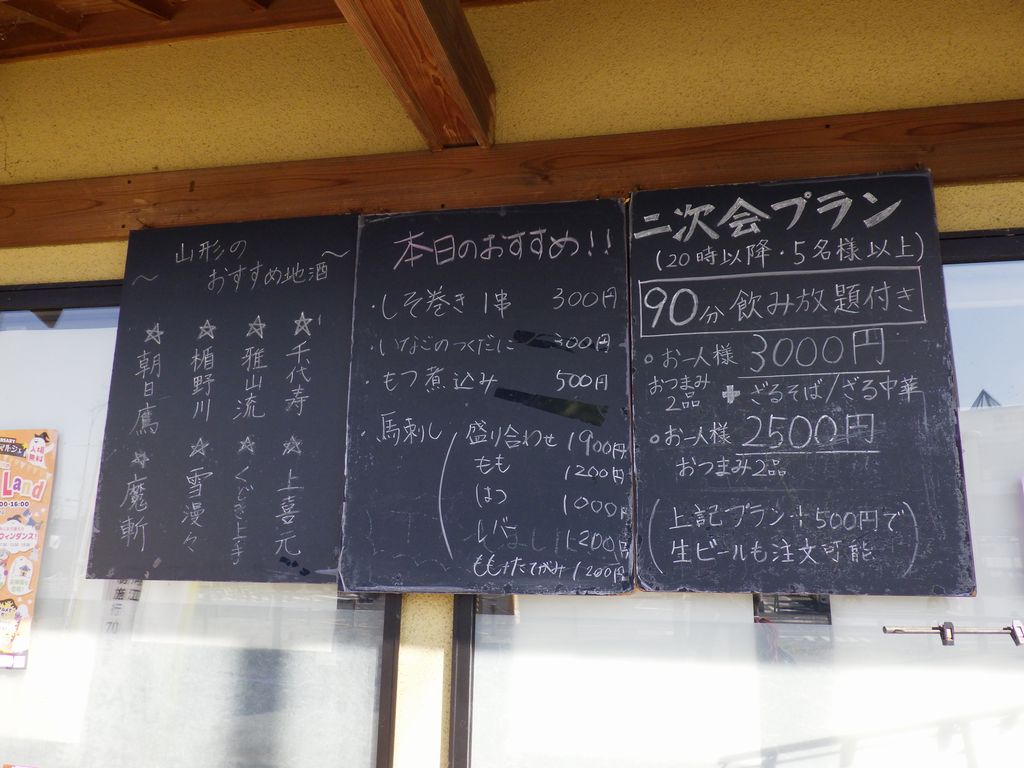 山形の
～おすすめ地酒～
☆千代寿
☆上喜元
☆雅山流
☆くどき上手
☆楯野川
☆雪漫々
☆朝日鷹
☆魔斬
本日のおすすめ!!
・しそ巻き 1串 300円
・いなごのつくだに 300円
・もつ煮込み 500円
・馬刺し
盛り合わせ 1900円
もも 1200円
はつ 1000円
レバ 1200円
ももけたてがみ 1200円
二次会プラン
(20時以降・5名様以上)
90分飲み放題付き
○お一人様 3000円
おつまみ2品 + ざるそば/ざる中華
○お一人様 2500円
おつまみ2品
(上記プラン+500円で
生ビールも注文可能)
入場無料
Land